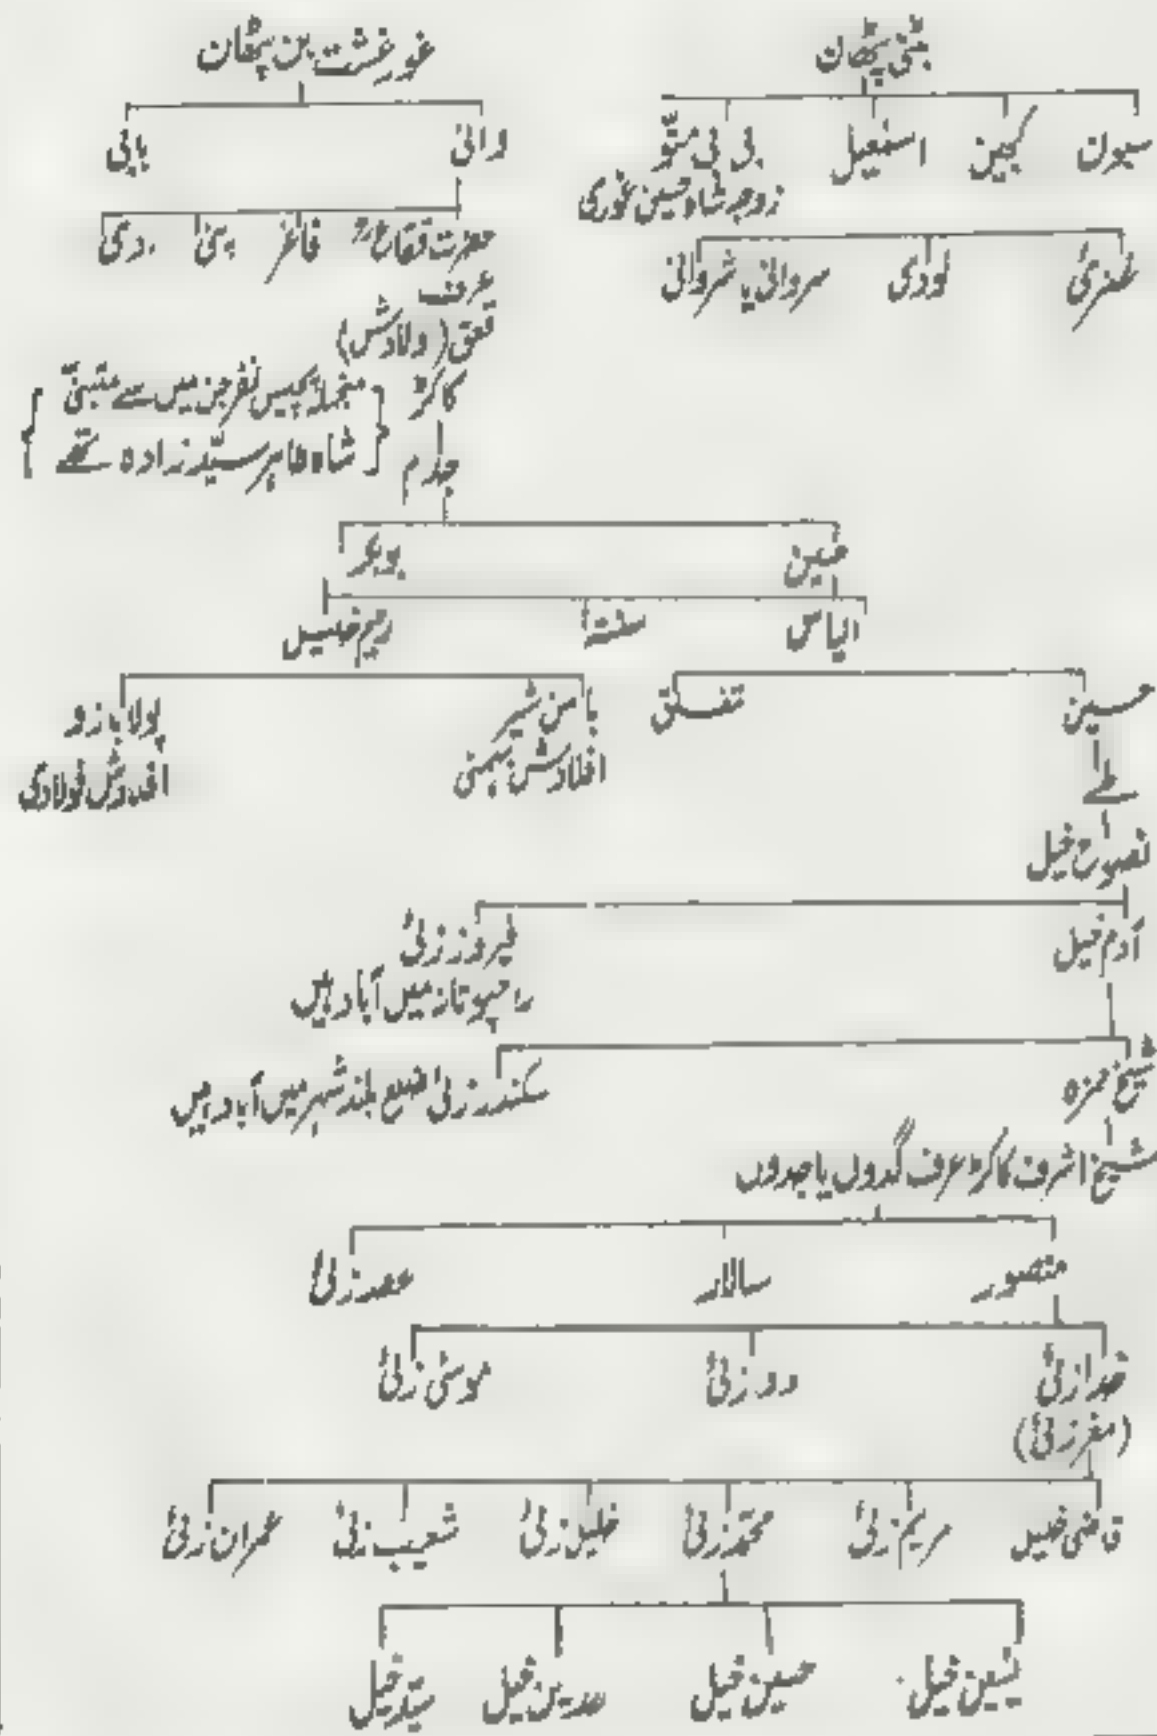 بٹنی پٹھان
سیون کجین اسمٰعیل بی بی متّو
زوجہ شاہ حسین غوری
غلزئ لودی سروانی یا شروانی
غورغشت بن پٹھان
دانی بابی
حضرت قفاع فاغر پنی
عرف
قعق (ولادش)
کاکڑ
جدم
{ منجملہ پچیس نفر جن میں سے متبنّیٰ
شاہ طاہر سیّد زادہ تھے }
حسین
الیاس رحیم خلیل
حسین تغلق
با من شیر پولا بازو
فولادی
طٰے
نصوح خیل
آدم خیل فیروز زئ
راجپوتانہ میں آباد ہیں
شیخ حمزہ سکندر زئ ضلع بلند شہر میں آباد ہیں
شیخ اشرف کاکڑ عرف گدون یا جدون
منصور سالار
خدازئ دو زئ موسیٰ زئ
(مغرزئ)
قاضی خیل مریم زئ محمّد زئ خلیل زئ شعیب زئ عمران زئ
یٰسین خیل حسین خیل سیّد خیل